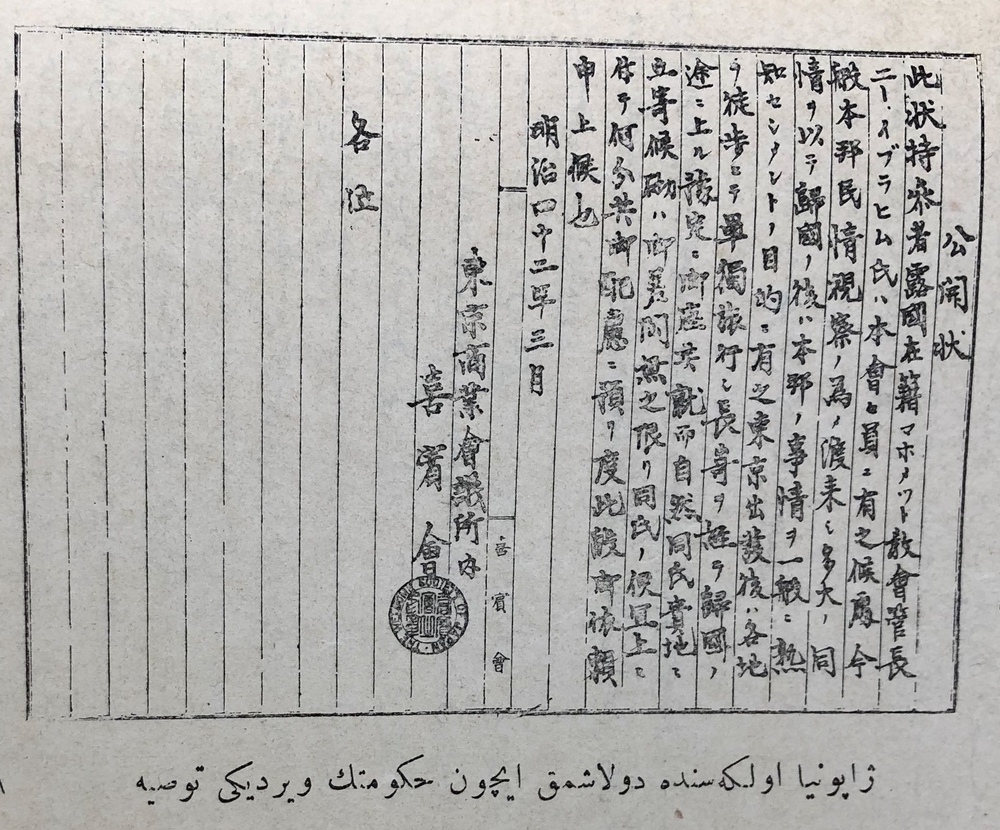 公開状
此状持参者露國在籍マホメット教會管長
ニー、イブラヒム氏ハ本會々員ニ有之候處今
般本邦民情視察ノ為メ渡来シ多大ノ同
情ヲ以テ歸國ノ後ハ本邦ノ事情ヲ一般ニ熟
知センメントノ目的ニ有之東京出發後ハ各地
ヲ徒歩ニテ單獨旅行シ長崎ヲ経テ歸國ノ
途ニ上ル豫定ニ御座候就而自然同氏貴地ニ
立寄候砌ハ御差閊無之限リ同氏ノ便宜上ニ
付テ何分共御配慮ニ預リ度此段御依頼
申上候也
明治四十二年三月
東京商業會議所内
喜賓會
喜賓會
THE WELCOME SOCIETY OF JAPAN
各位
ژاپونیا اولكه‌سنده دولاشمق ایچون حكومتك ویردیكی توصیه